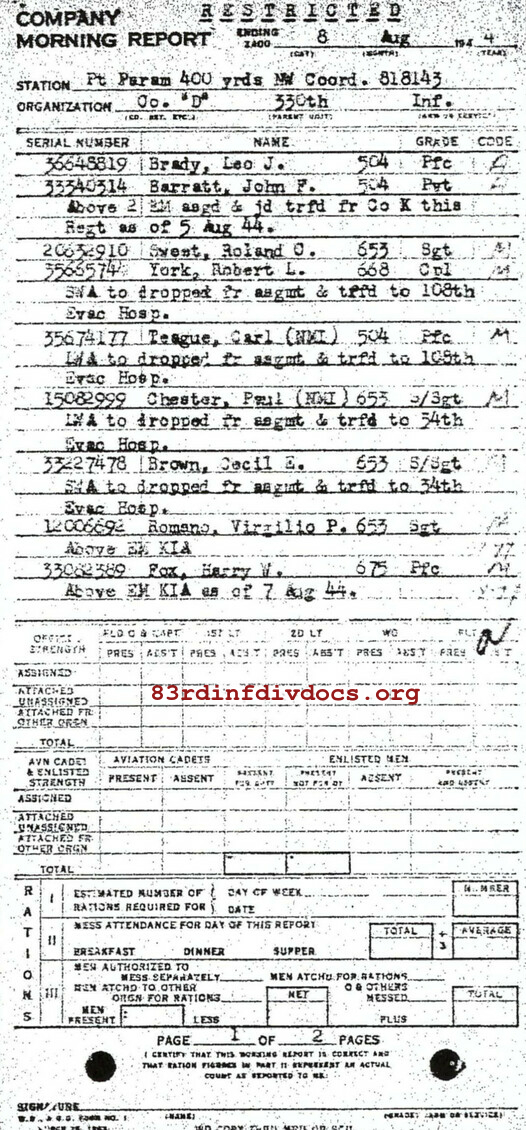 RESTRICTED
COMPANY
MORNING REPORT
ENDING 2400 8 Aug 194 4
(DAY) (MONTH) (YEAR)
STATION Pt Param 400 yrds NW Coord. 818143
ORGANIZATION Co. "D" 330th Inf.
(CO. BET. ETC.) (PARENT UNIT) (ARM OR SERVICE)
SERIAL NUMBER NAME GRADE CODE
36648819 Brady, Leo J. 504 Pfc
33340314 Barratt, John F. 504 Pvt
Above 2 EM asgd & jd trfd fr Co K this
Regt as of 5 Aug 44.
20632910 Swest, Roland C. 653 Sgt M
3566574 York, Robert L. 668 Cpl M
SWA to dropped fr asgmt & trfd to 108th
Evac Hosp.
35674177 Teague, Carl (NMI) 504 Pfc M
LWA to dropped fr asgmt & trfd to 108th
Evac Hosp.
15082999 Chester, Paul (NMI) 653 S/Sgt M
LWA to dropped fr asgmt & trfd to 34th
Evac Hosp.
33227478 Brown, Cecil E. 653 S/Sgt
SWA to dropped fr asgmt & trfd to 34th
Evac Hosp.
12006692 Romano, Virgilio P. 653 Sgt
Above EM KIA
33062389 Fox, Harry W. 675 Pfc M
Above EM KIA as of 7 Aug 44.
OFFICER STRENGTH FLD O & CAPT 1ST LT 2D LT WO FLT
PRES ABS'T PRES ABS'T PRES ABS'T PRES ABS'T PRES
ASSIGNED
ATTACHED UNASSIGNED
83rdinfdivdocs.org
ATTACHED FR OTHER ORGN
TOTAL
AVN CADET & ENLISTED STRENGTH AVIATION CADETS ENLISTED MEN
PRESENT ABSENT PRESENT FOR DUTY PRESENT NOT FOR DY ABSENT PRESENT AND ABSENT
ASSIGNED
ATTACHED UNASSIGNED
ATTACHED FR OTHER ORGN
TOTAL
RATIONS
I ESTIMATED NUMBER OF DAY OF WEEK NUMBER
RATIONS REQUIRED FOR DATE
II MESS ATTENDANCE FOR DAY OF THIS REPORT TOTAL ÷ 3 AVERAGE
BREAKFAST DINNER SUPPER
III MEN AUTHORIZED TO MESS SEPARATELY MEN ATCHD FOR RATIONS
MEN ATCHD TO OTHER ORGN FOR RATIONS NET O & OTHERS MESSED TOTAL
MEN PRESENT LESS PLUS
PAGE 1 OF 2 PAGES
I CERTIFY THAT THIS MORNING REPORT IS CORRECT AND
THAT RATION FIGURES IN PART II REPRESENT AN ACTUAL
COUNT AS REPORTED TO ME:
SIGNATURE
W.D., A.G.O. FORM NO. 1 (NAME) (GRADE) (ARM OR SERVICE)